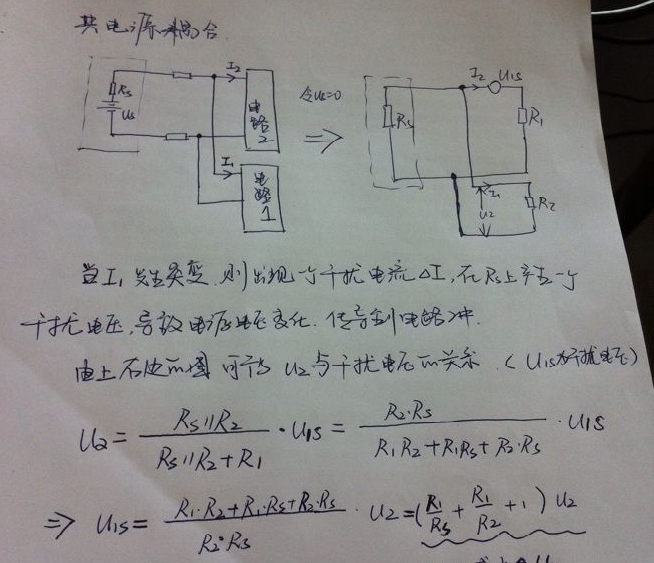 共电源耦合.
I2
I2 U1S
Rs
Us
电路2
令Us=0
⇒
Rs
R1
I1
电路1
I1
U2
R2
当I1发生突变,则出现一个干扰电流△I,在Rs上产生一个
干扰电压,导致电源电压变化.传导到电路2中.
由上右边的图可得 U2与干扰电压的关系.(U1S为干扰电压)
U2 = Rs//R2 / (Rs//R2+R1) · U1S = R2·Rs / (R1R2+R1Rs+R2·Rs) · U1S
⇒ U1S = (R1·R2+R1·Rs+R2·Rs) / (R2·Rs) · U2 = (R1/Rs + R1/R2 + 1) U2